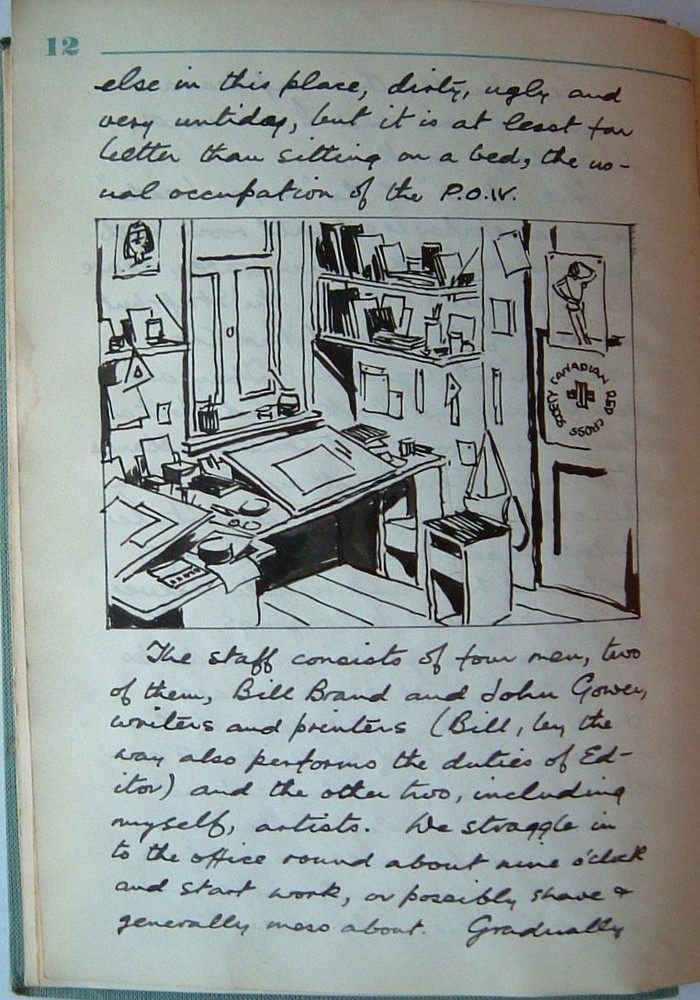 12
else in this place, dirty, ugly and
very untidy, but it is at least far
better than sitting on a bed, the us-
ual occupation of the P.O.W.
CANADIAN RED CROSS SOCIETY
The staff consists of four men, two
of them, Bill Brand and John Gower,
writers and printers (Bill, by the
way also performs the duties of Ed-
itor) and the other two, including
myself, artists. We straggle in
to the office round about nine o'clock
and start work, or possibly shave &
generally mess about. Gradually